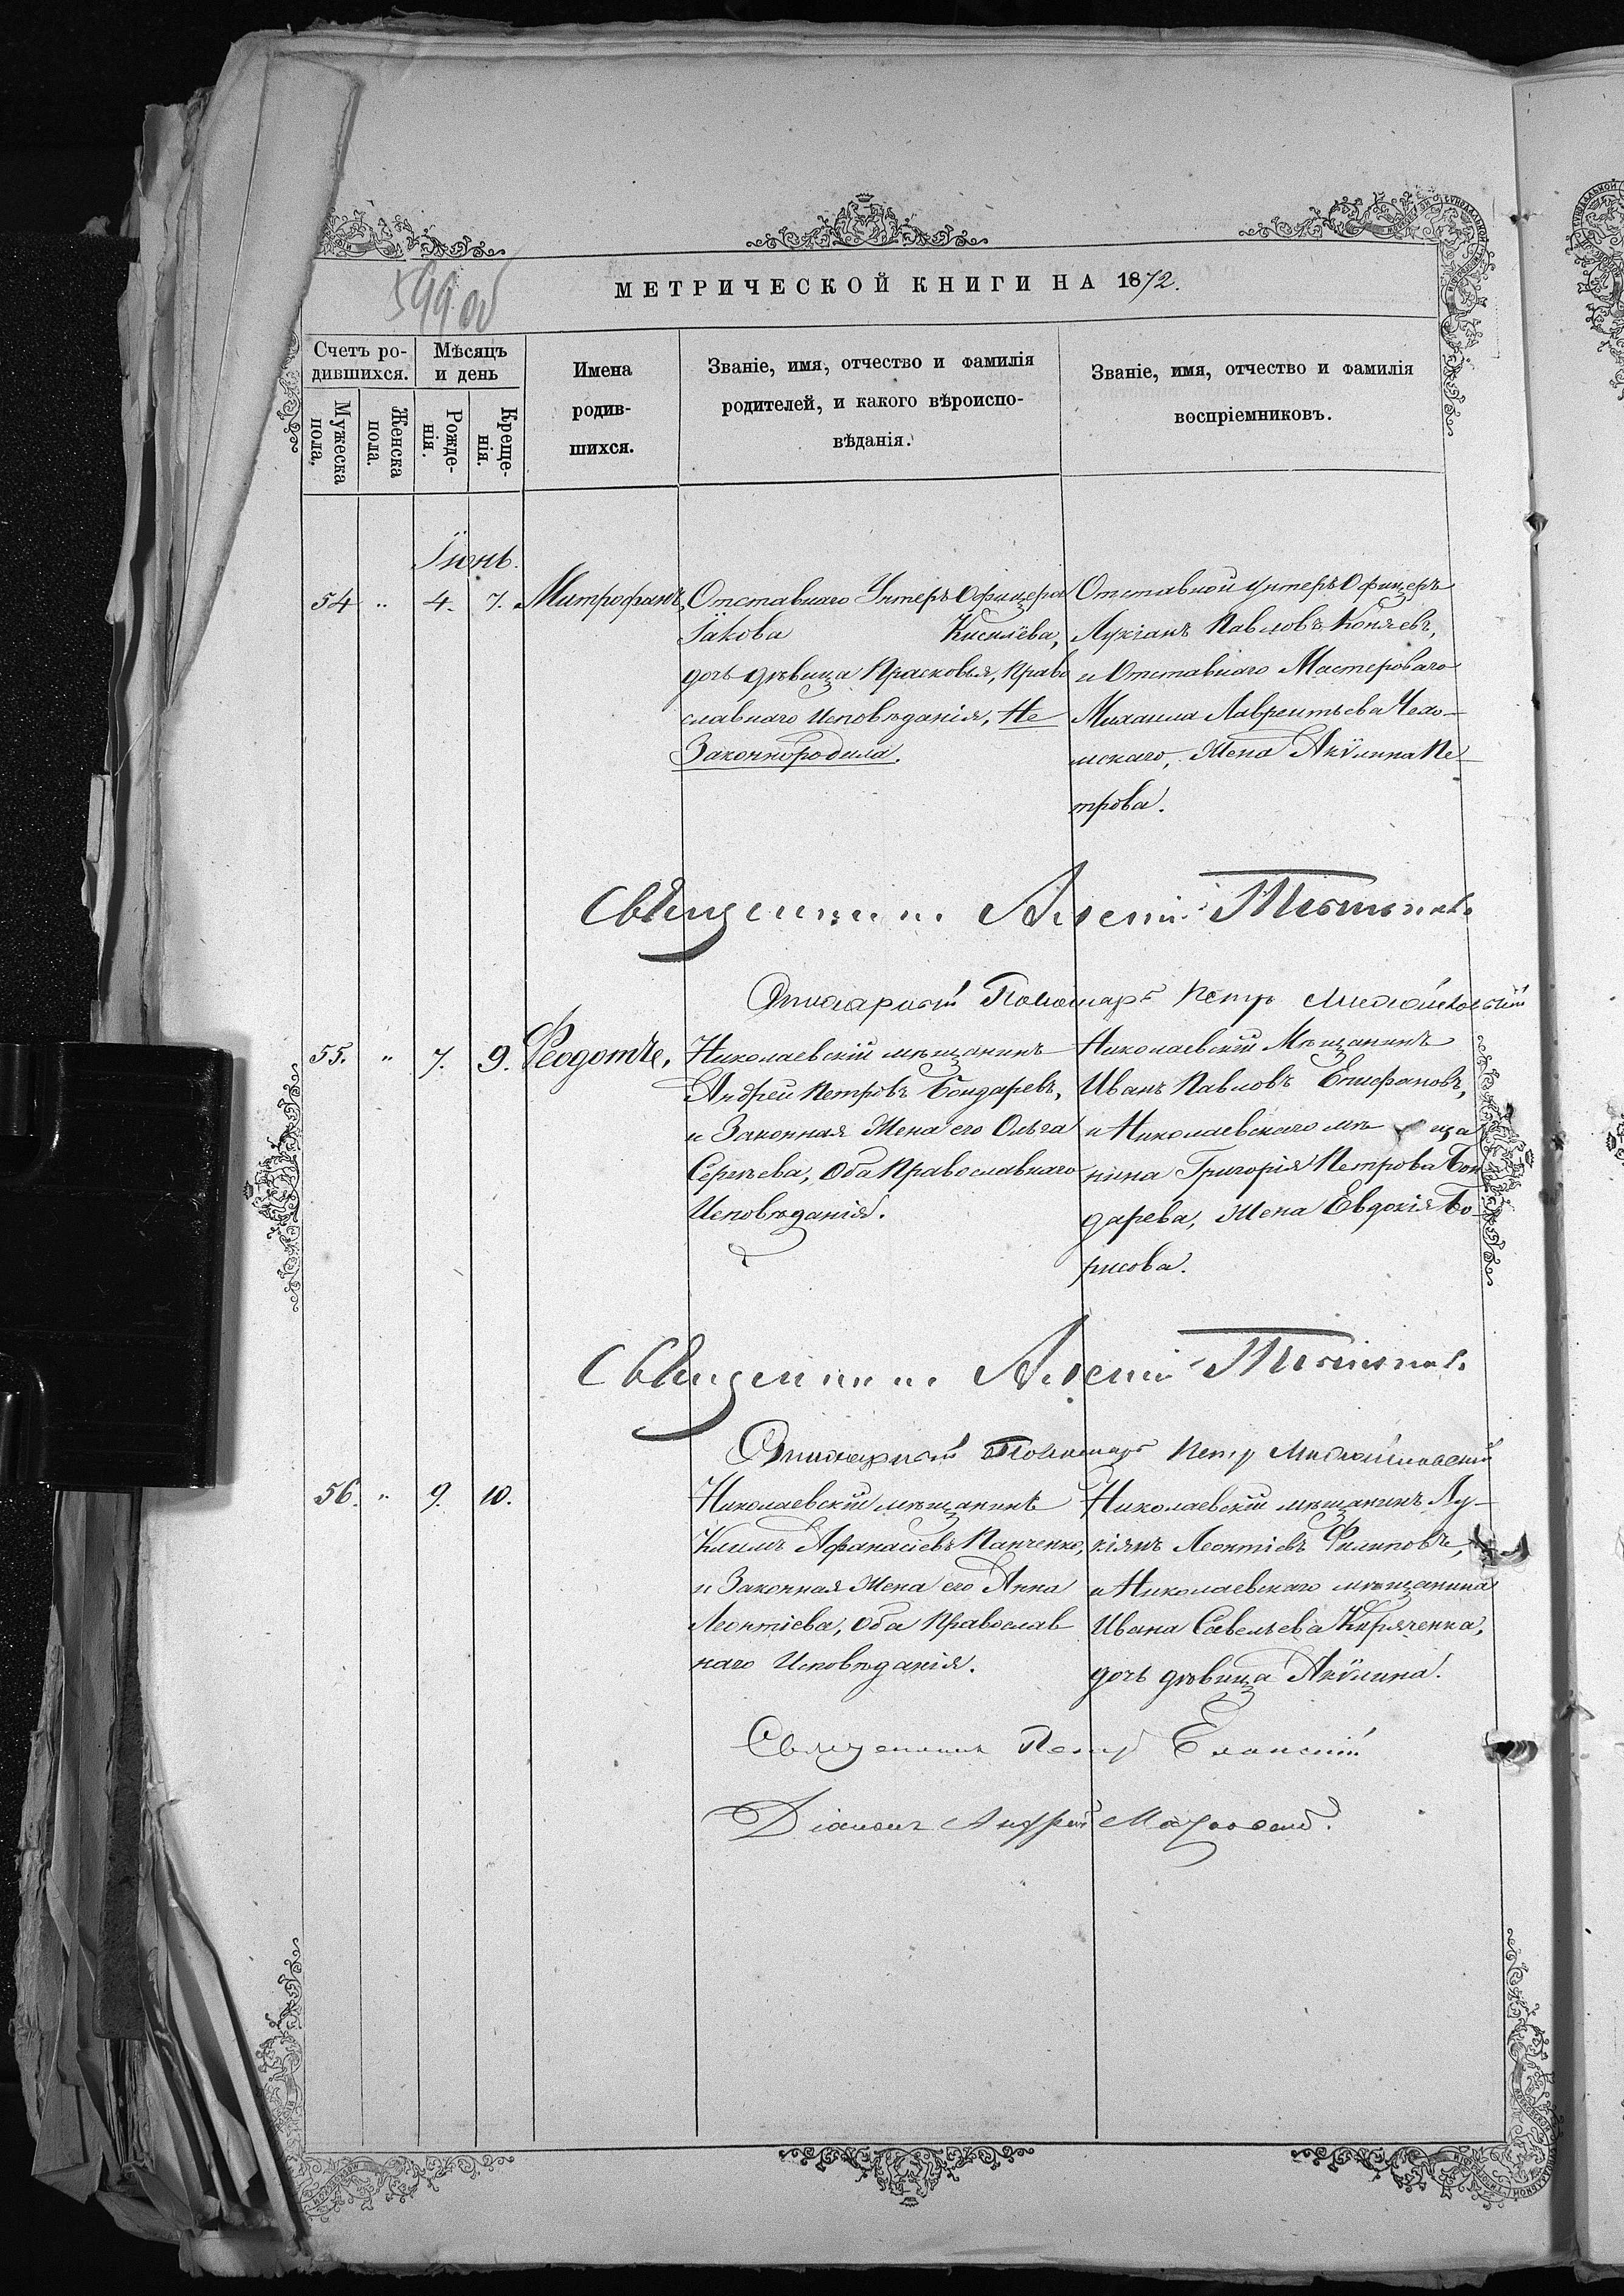 599 об
МЕТРИЧЕСКОЙ КНИГИ НА 1872.
Счетъ ро-
дившихся.
Мужеска
пола.
Женска
пола.
Мѣсяцъ
и день
Рожде-
нія.
Креще-
нія.
Имена
родив-
шихся.
Званіе, имя, отчество и фамилія
родителей, и какого вѣроиспо-
вѣданія.
Званіе, имя, отчество и фамилія
воспріемниковъ.
Іюнь.
54 " 4. 7. Митрофанъ,
Отставнаго Унтеръ Офицера
Іакова Кисилёва,
дочь дѣвица Прасковья, Право
славнаго Исповѣданія, Не
Законнородила.
Отставной Унтеръ Офицеръ
Лукіанъ Павловъ Коняевъ,
и Отставнаго Мастероваго
Михаила Лаврентьева
Жена Акулина Пе
трова.
Священникъ
Петръ
55. " 7. 9. Феодотъ,
Николаевскій мѣщанинъ
Андрей Петровъ Бондаревъ,
и Законная Жена его Ольга
Сергѣева, Оба Православнаго
Исповѣданія.
Николаевскій Мѣщанинъ
Иванъ Павловъ Епифановъ,
и Николаевскаго мѣ ща
нина Григорія Петрова Бон
дарева, Жена Евдокія Бо-
рисова.
Священникъ
Петръ
56. " 9. 10.
Николаевскій мѣщанинъ
Климъ Афанасіевъ Панченко,
и Законная Жена его Анна
Леонтіева, Оба Православ
наго Исповѣданія.
Николаевскій мѣщанинъ Лу-
кіянъ Леонтіевъ Филиповъ,
и Николаевскаго мѣщанина
Ивана Савельева Киряченка,
дочь дѣвица Акулина.
Священникъ Петръ Еланскій
Діаконъ Андрей